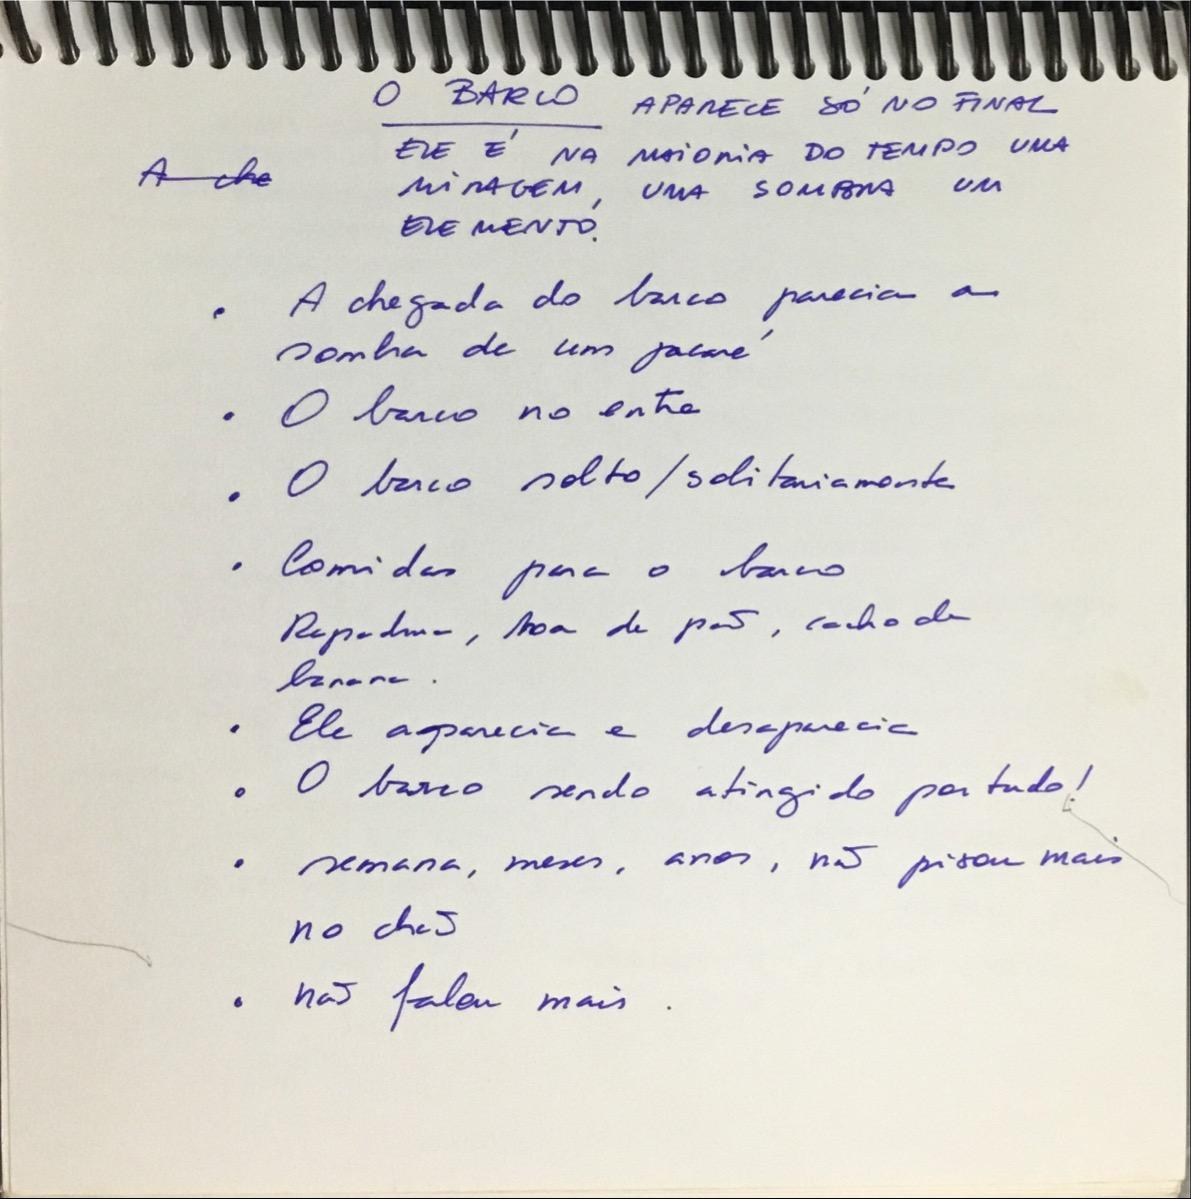 O BARCO APARECE SÓ NO FINAL
ELE É NA MAIORIA DO TEMPO UMA
A che
MIRAGEM, UMA SOMBRA UM
ELEMENTO.
• A chegada do barco parecia a
sombra de um jacaré
• O barco no entre
• O barco solto/solitariamente
• Comidas para o barco
Rapadura, broa de pão, cacho de
banana.
• Ele aparecia e desaparecia
• O barco sendo atingido por tudo!
• semana, meses, anos, não pisou mais
no chão
• não falou mais.